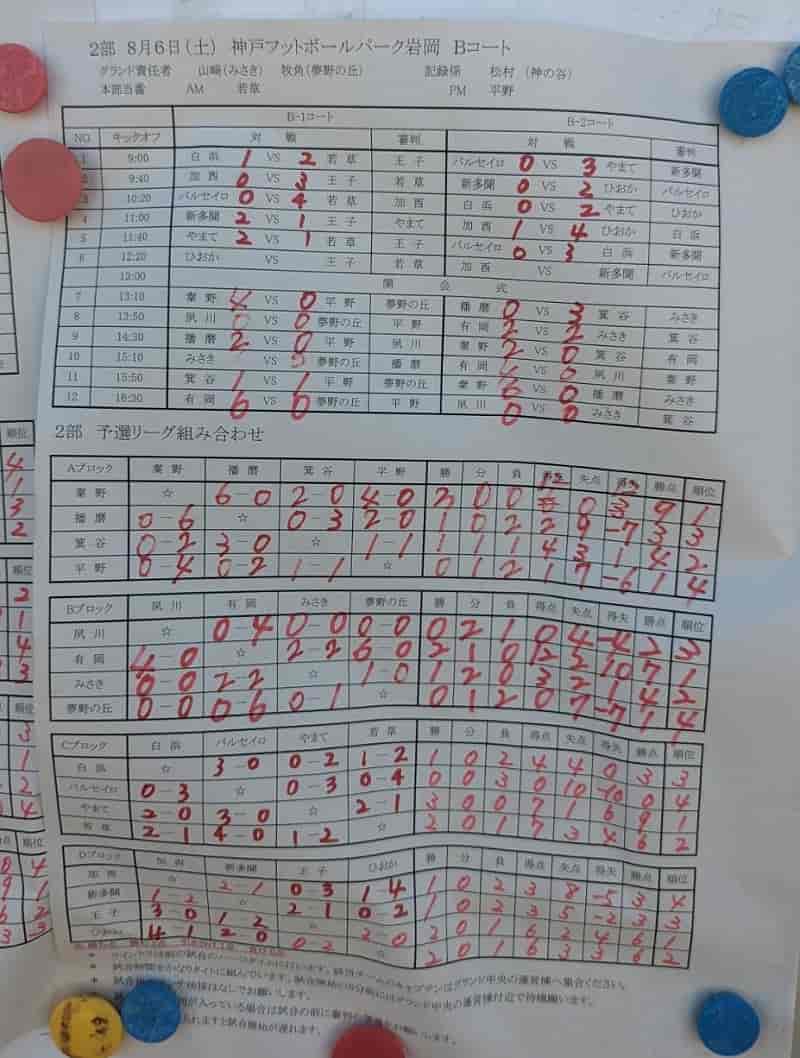 2部 8月6日(土) 神戸フットボールパーク岩岡 Bコート
グランド責任者 山﨑(みさき) 牧角(夢野の丘) 記録係 松村 (神の谷)
本部当番 AM 若草 PM 平野
B-1コート B-2コート
NO キックオフ 対 戦 審判 対 戦 審判
1 9:00 白浜 1 VS 2 若草 王子 バルセイロ 0 VS 3 やまて 新多聞
2 9:40 加西 0 VS 3 王子 若草 新多聞 0 VS 2 ひおか バルセイロ
3 10:20 バルセイロ 0 VS 4 若草 加西 白浜 0 VS 2 やまて ひおか
4 11:00 新多聞 2 VS 1 王子 やまて 加西 1 VS 4 ひおか 白浜
5 11:40 やまて 2 VS 1 若草 王子 バルセイロ 0 VS 3 白浜 新多聞
6 12:20 ひおか VS 王子 若草 加西 VS 新多聞 バルセイロ
13:00 開 会 式
7 13:10 秦野 4 VS 0 平野 夢野の丘 播磨 0 VS 3 箕谷 みさき
8 13:50 夙川 0 VS 0 夢野の丘 平野 有岡 2 VS 2 みさき 箕谷
9 14:30 播磨 2 VS 0 平野 夙川 秦野 2 VS 0 箕谷 有岡
10 15:10 みさき VS 夢野の丘 播磨 有岡 4 VS 0 夙川 秦野
11 15:50 箕谷 1 VS 1 平野 夢野の丘 秦野 6 VS 0 播磨 みさき
12 16:30 有岡 6 VS 0 夢野の丘 平野 夙川 0 VS 0 みさき 箕谷
2部 予選リーグ組み合わせ
Aブロック 秦野 播磨 箕谷 平野 勝 分 負 得点 失点 得失 勝点 順位
秦野 ☆ 6-0 2-0 4-0 3 0 0 12 0 12 9 1
播磨 0-6 ☆ 0-3 2-0 1 0 2 2 9 -7 3 3
箕谷 0-2 3-0 ☆ 1-1 1 1 1 4 3 1 4 2
平野 0-4 0-2 1-1 ☆ 0 1 2 1 7 -6 1 4
Bブロック 夙川 有岡 みさき 夢野の丘 勝 分 負 得点 失点 得失 勝点 順位
夙川 ☆ 0-4 0-0 0-0 0 2 1 0 4 -4 2 3
有岡 4-0 ☆ 2-2 6-0 2 1 0 12 2 10 7 1
みさき 0-0 2-2 ☆ 1-0 1 2 0 3 2 1 4 2
夢野の丘 0-0 0-6 0-1 ☆ 0 1 2 0 7 -7 1 4
Cブロック 白浜 バルセイロ やまて 若草 勝 分 負 得点 失点 得失 勝点 順位
白浜 ☆ 3-0 0-2 1-2 1 0 2 4 4 0 3 3
バルセイロ 0-3 ☆ 0-3 0-4 0 0 3 0 10 -10 0 4
やまて 2-0 3-0 ☆ 2-1 3 0 0 7 1 6 9 1
若草 2-1 4-0 1-2 ☆ 2 0 1 7 3 4 6 2
Dブロック 加西 新多聞 王子 ひおか 勝 分 負 得点 失点 得失 勝点 順位
加西 ☆ 2-1 0-3 1 4 1 0 2 3 8 -5 3 4
新多聞 1-2 ☆ 2-1 0-2 1 0 2 3 5 -2 3 3
王子 3-0 1-2 ☆ 2-0 2 0 1 6 2 4 6 1
ひおか 4-1 2-0 0-2 2 0 1 6 3 3 6 2